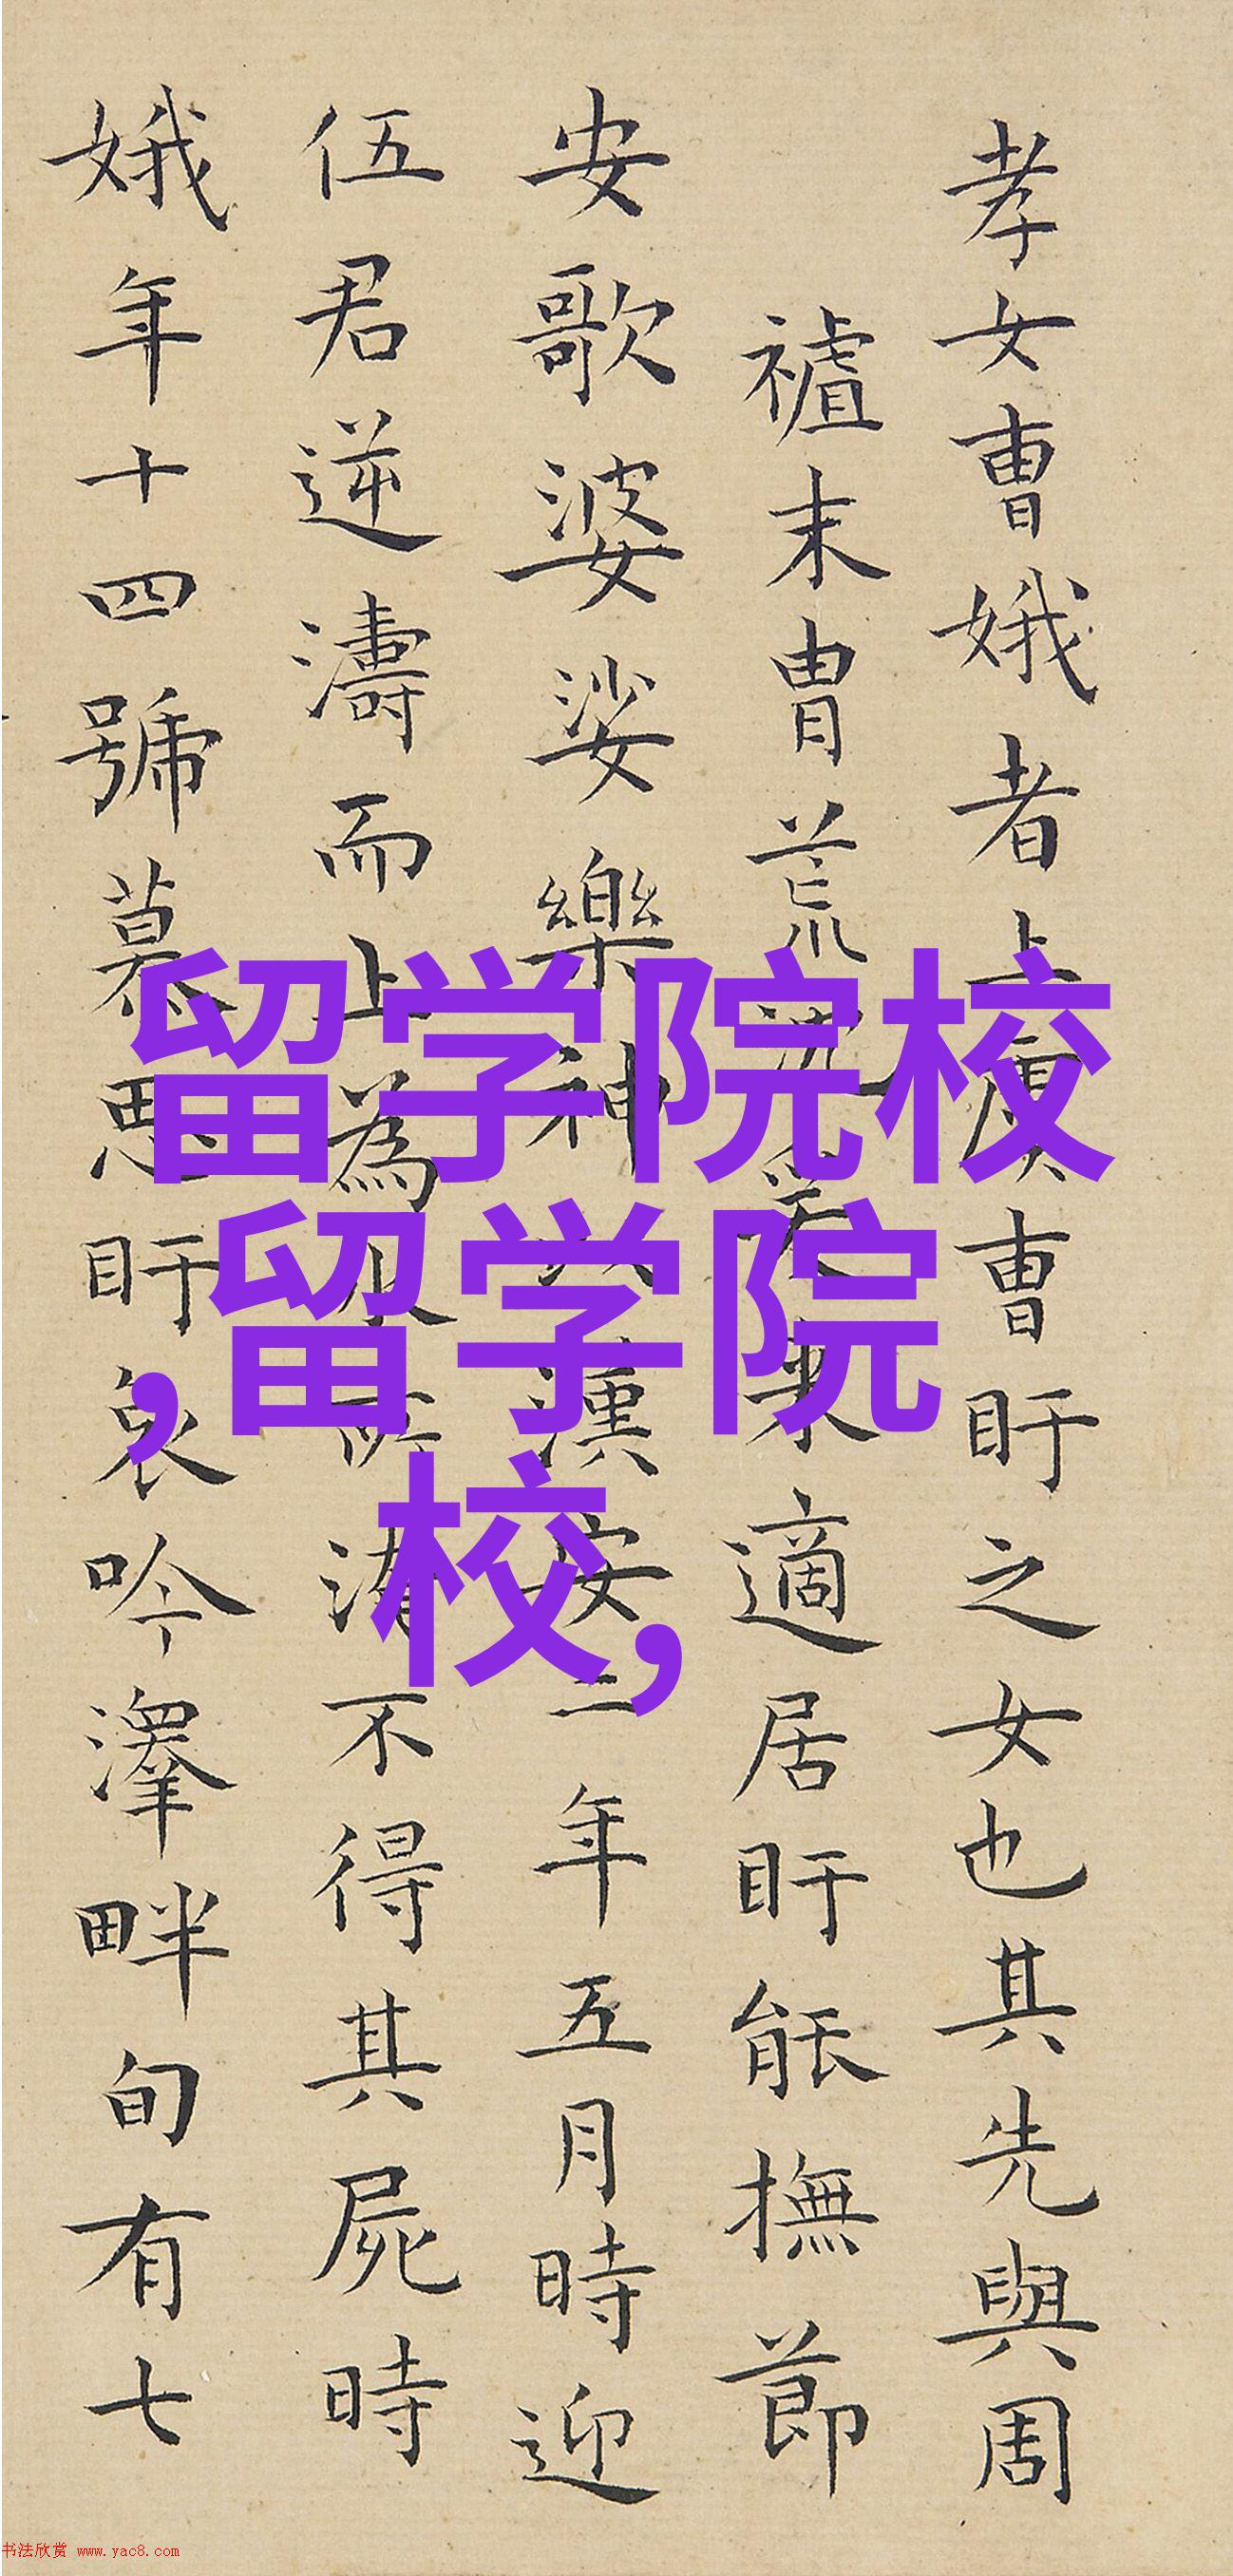 孝女曹娥者上虞曹盱之女也其先與周
末胄荒沉爰来適居盱能撫節
安歌婆娑樂神以漢安二年五月時迎
伍君逆濤而上為水所淹不得其屍時
娥年十四號慕思盱哀吟澤畔旬有七
留学院校
,留学院
校,
书法欣赏 www.yac8.com